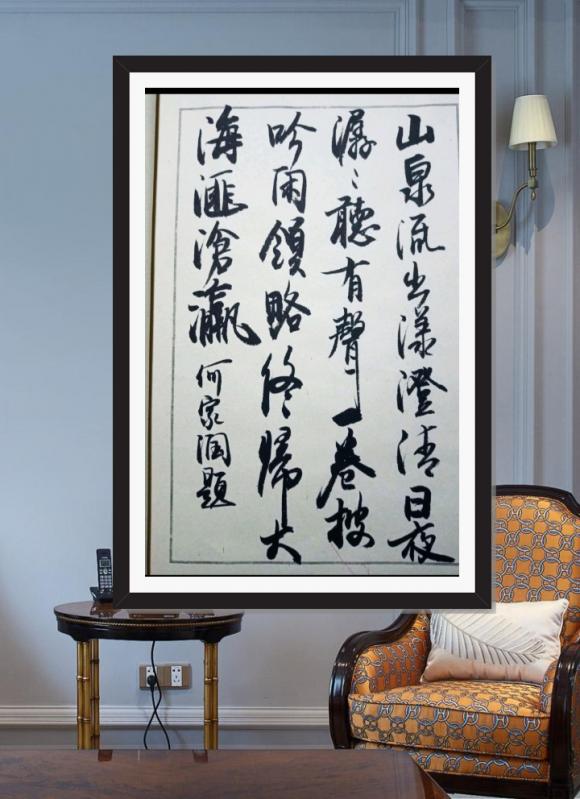 山泉流出漾澄清日夜
潺〻聽有聲一卷披
吟閑領略終歸大
海匯滄瀛
何家題